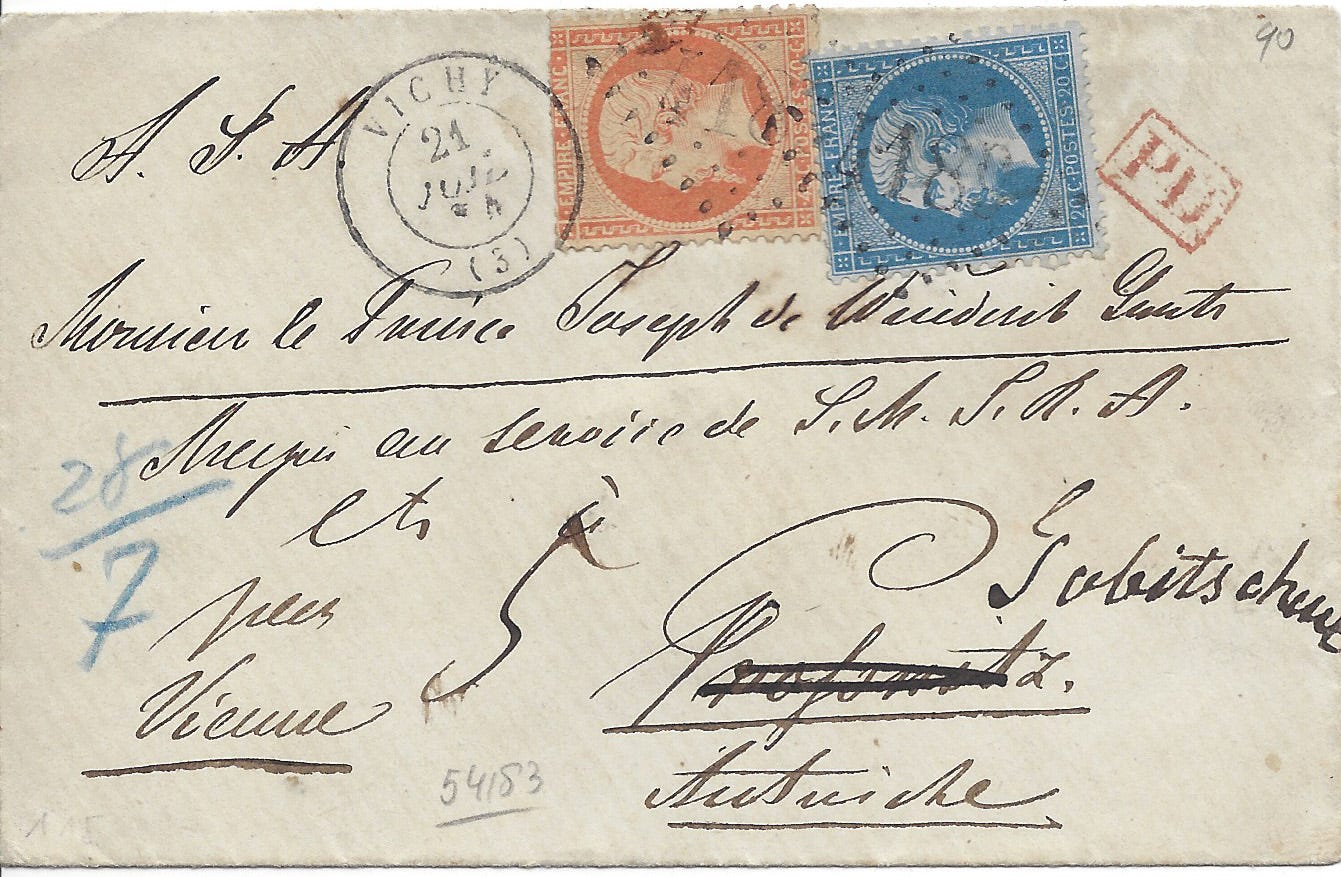 90
VICHY
21
JUIL
(3)
EMPIRE FRANC
40 C. POSTES 40 C.
EMPIRE FRANC
20 C. POSTES 20 C.
418
P.D.
A. S. A.
Monsieur le Prince Joseph de Windisch Gratz
au service de S. M. I. R. A.
etc à
28
7
5
par
Vienne
Gabitschau
Autriche
54183
115